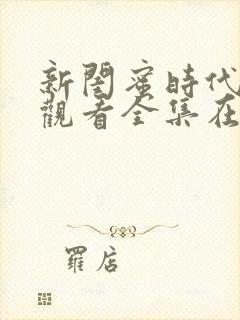 新閨蜜時代
觀看全集在
羅店